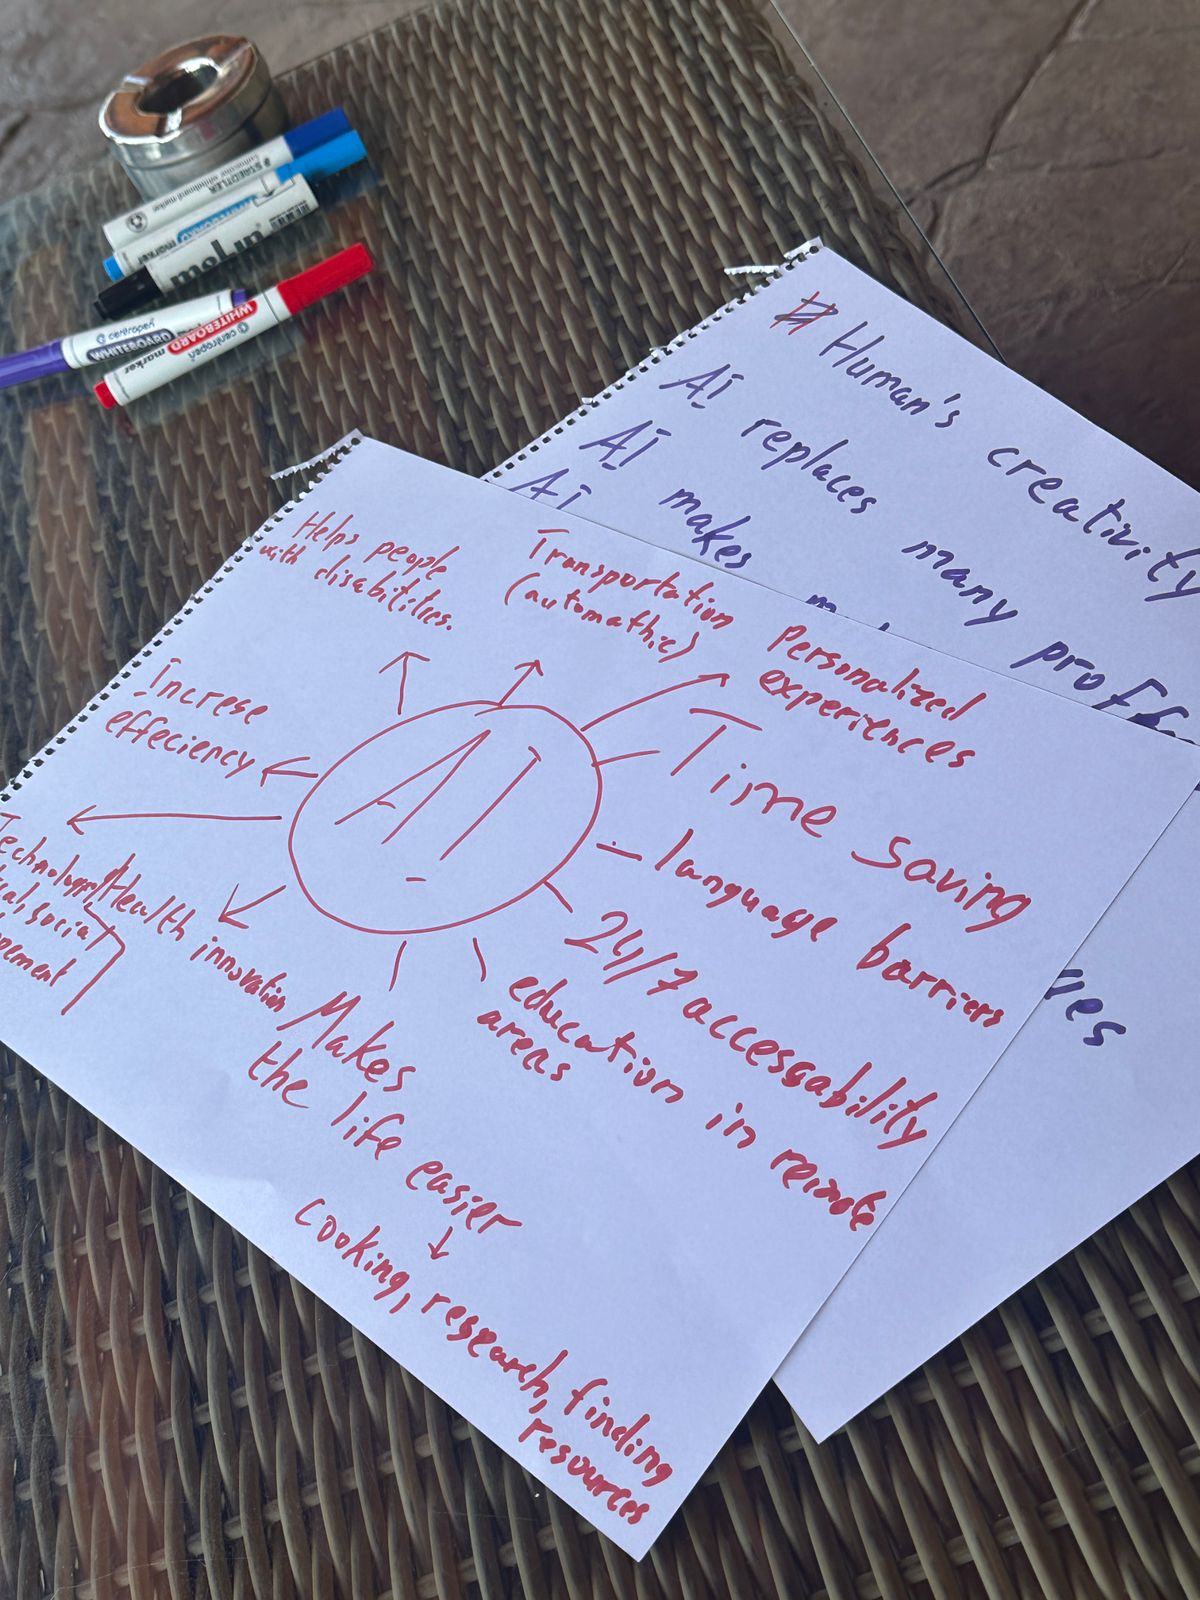 # Human's creativity
AI replaces many
AI makes
AI
Helps people
with disabilities.
Transportation
(automathic)
Personalized
experiences
Increse
effeciency
AI
Time saving
language barriers
24/7 accessability
education in remote
areas
Makes
the life easier
↓
cooking, research, finding
resources
Health innovation
social
STAEDTLER
WHITEBOARD
marker
centropen
WHITEBOARD
marker
centropen
WHITEBOARD
marker